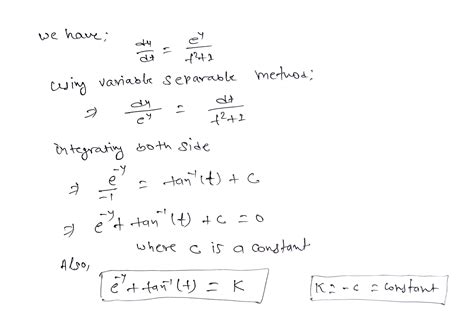 we have;
dy/dt = e^y/t²+1
using variable separable method;
⇒ dy/e^y = dt/t²+1
integrating both side
⇒ e^-y/-1 = tan⁻¹(t) + C
⇒ e^-y + tan⁻¹(t) + C = 0
where C is a constant
Also,
e^-y + tan⁻¹(t) = K
K = -c = constant